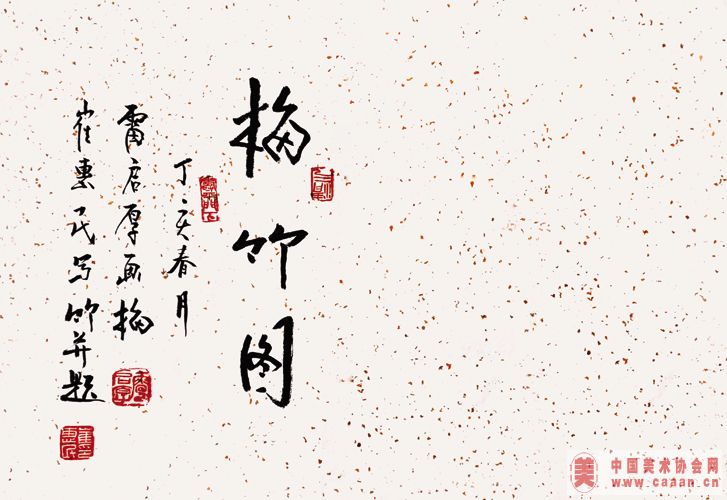 梅竹图
丁亥春月
雷启厚画梅
崔惠民写竹并题
中国美术协会网
www.caaan.cn